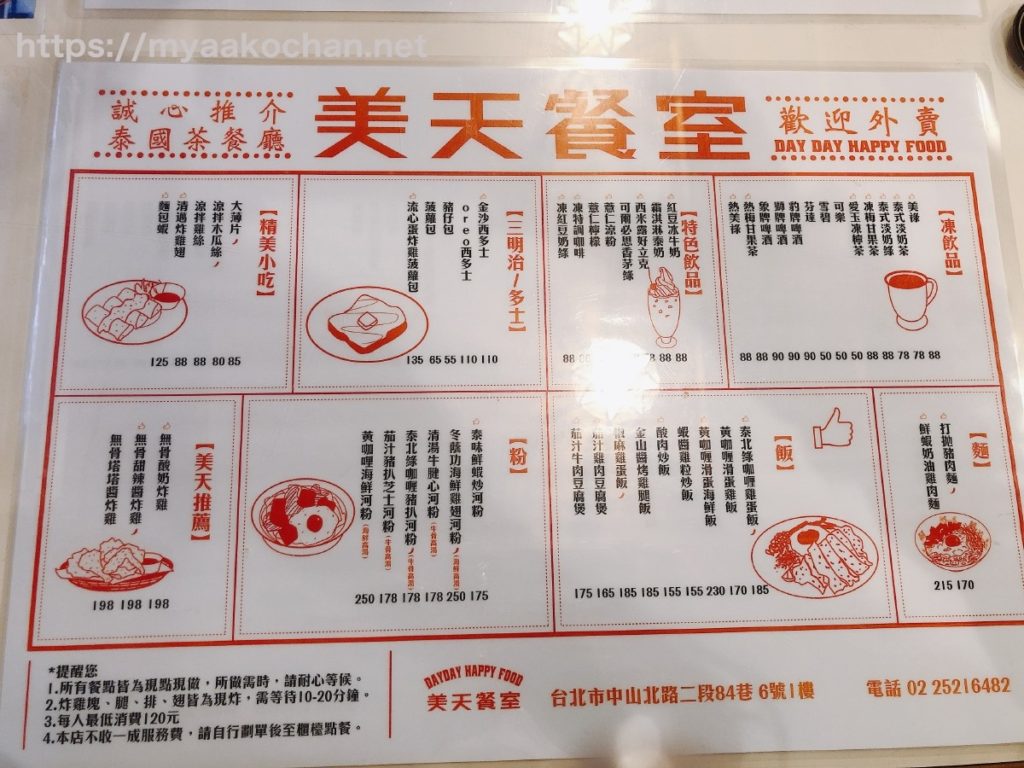 https://myaakochan.net
誠心推介
泰國茶餐廳
美天餐室
歡迎外賣
DAY DAY HAPPY FOOD
【凍飲品】
美祿
泰式淡奶茶
泰式淡奶綠
凍梅甘果茶
愛玉凍檸茶
可樂
雪碧
芬達
豹牌啤酒
獅牌啤酒
象牌啤酒
熱梅甘果茶
熱美祿
88 88 90 90 90 50 50 50 88 88 78 78 88
【特色飲品】
紅豆冰牛奶
霜淇淋泰奶
西米露好立克
可爾必思香茅綠
薏仁涼粉
薏仁檸檬
凍特調咖啡
凍紅豆奶綠
88 88
【三明治/多士】
金沙西多士
oreo西多士
豬仔包
菠蘿包
流心蛋炸雞菠蘿包
135 65 55 110 110
【精美小吃】
大薄片
涼拌木瓜絲
涼拌雞絲
清邁炸雞翅
麵包蝦
125 88 88 80 85
【麵】
打拋豬肉麵
鮮蝦奶油雞肉麵
215 170
【飯】
泰北綠咖喱雞蛋飯
黃咖喱滑蛋雞飯
黃咖喱滑蛋海鮮飯
蝦醬雞粒炒飯
酸肉炒飯
金山醬烤雞腿飯
椒麻雞蛋飯
茄汁雞肉豆腐煲
茄汁牛肉豆腐煲
175 165 185 185 155 155 230 170 185
【粉】
泰味鮮蝦炒河粉
冬蔭功海鮮雞翅河粉(海鮮高湯)
清湯牛腱心河粉(牛骨高湯)
泰北綠咖喱豬扒河粉(牛骨高湯)
茄汁豬扒芝士河粉(牛骨高湯)
黃咖喱海鮮河粉(海鮮高湯)
250 178 178 178 250 175
【美天推薦】
無骨酸奶炸雞
無骨甜辣醬炸雞
無骨塔塔醬炸雞
198 198 198
*提醒您
1.所有餐點皆為現點現做，所做需時，請耐心等候。
2.炸雞塊、腿、排、翅皆為現炸，需等待10-20分鐘。
3.每人最低消費120元
4.本店不收一成服務費，請自行劃單後至櫃檯點餐。
DAYDAY HAPPY FOOD
美天餐室
台北市中山北路二段84巷 6號1樓
電話 02 25216482